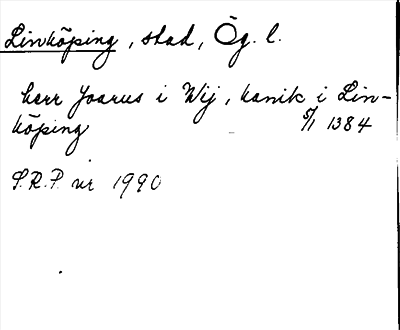 Linköping, stad, Ög. l.
herr Joarus i Wij, kanik i Lin-
köping 5/1 1384
S.R.P. nr 1990